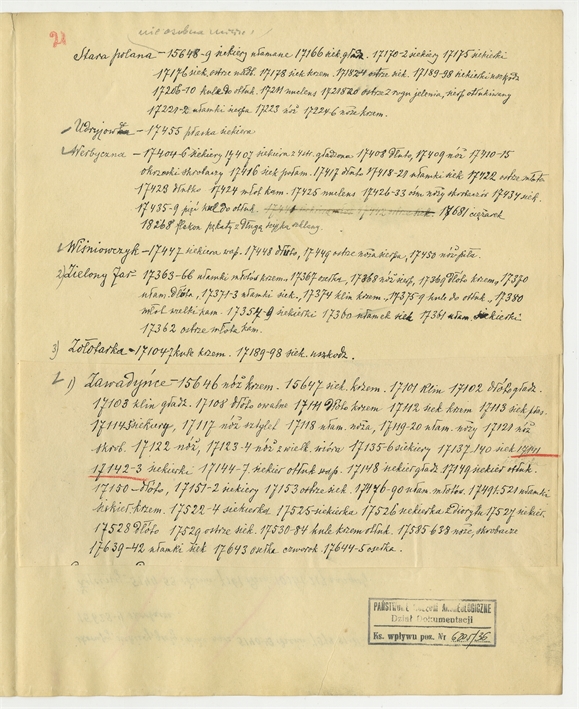 21
nie osobna
Stara polana – 15648-9 siekiery ułamane 17166 siek. gładz. 17170-2 siekiery 17175 siekierki
17176 siek. ostrze 17178 siek krzem. 17182 ostrze siek. 17189-98 siekierki
17206-10 kule do otłuk. 17211 nucleus ostrze z rogu jelenia, sierp obłukiwany
17221-2 ułamki sierpa 17223 nóż 17224-6 noże krzem.
– 17455 płaska siekiera
Werbyczna – 17404-6 siekiery 17407 siekiera gładzona 17408 dłuto, 17409 nóż 17410-15
okrzoski skrobaczy 17416 siek połam. 17417 dłuto 17418-21 ułamki siek 17422 ostrze młota
17423 dłutko 17424 młot kam. 17425 nucleus 17426-33 noży skrobaczów 17434 siek.
17435-9 pięć kul do otłuk. 17681 ciężarek
18268 flakon pękaty z długą szyjką
Wiśniowczyk – 17447 siekiera wap. 17448 dłuto, 17449 ostrze noża sierpa, 17450 nóż piła.
2) Zielony Jar – 17363-66 ułamki młotów krzem. 17367 osełka, 17368 nóż sierp, 17369 dłuto krzem, 17370
ułam. dłuta, 17371-3 ułamki siek., 17374 klin krzem., 17375-9 kule do otłuk. 17380
młot wielki kam. 17354-9 siekierki 17360 ułamek siek 17361 ułam. siekierki
17362 ostrze młota kam.
3) Zołotarka – 171047 kule krzem. 17189-98 siek. uszkodz.
1) Zawadyńce – 15646 nóż krzem. 15647 siek. krzem. 17101 klin 17102 dłuto gładz.
17103 klin gładz. 17108 dłuto owalne 17111 dłuto krzem 17112 siek krzem 17113 siek płas.
17114 siekiery, 17117 nóż sztylet 17118 ułam. noża, 17119-20 ułam. noży 17121 nóż
skrob. 17122 nóż, 17123-4 nóż z wielk. wióra 17135-6 siekiery 17137, 140 siek 17141
17142-3 siekierki 17144-7 siekier otłuk wap. 17148 siekier gładz 17149 siekier otłuk.
17150 – dłuto, 17151-2 siekiery 17153 ostrze siek. 17476-90 ułam. młotów. 17491, 521 ułamki
siekier. krzem. 17522-4 siekierka 17525 siekierka 17526 siekierka 17527 siekier.
17528 dłuto 17529 ostrze siek. 17530-84 kule krzem otłuk. 17585-638 noże, skrobacze
17639-42 ułamki siek 17643 osełka czworok. 17644-5 osełka.
PAŃSTWOWE MUZEUM ARCHEOLOGICZNE
Dział Dokumentacji
Ks. wpływu poz. Nr